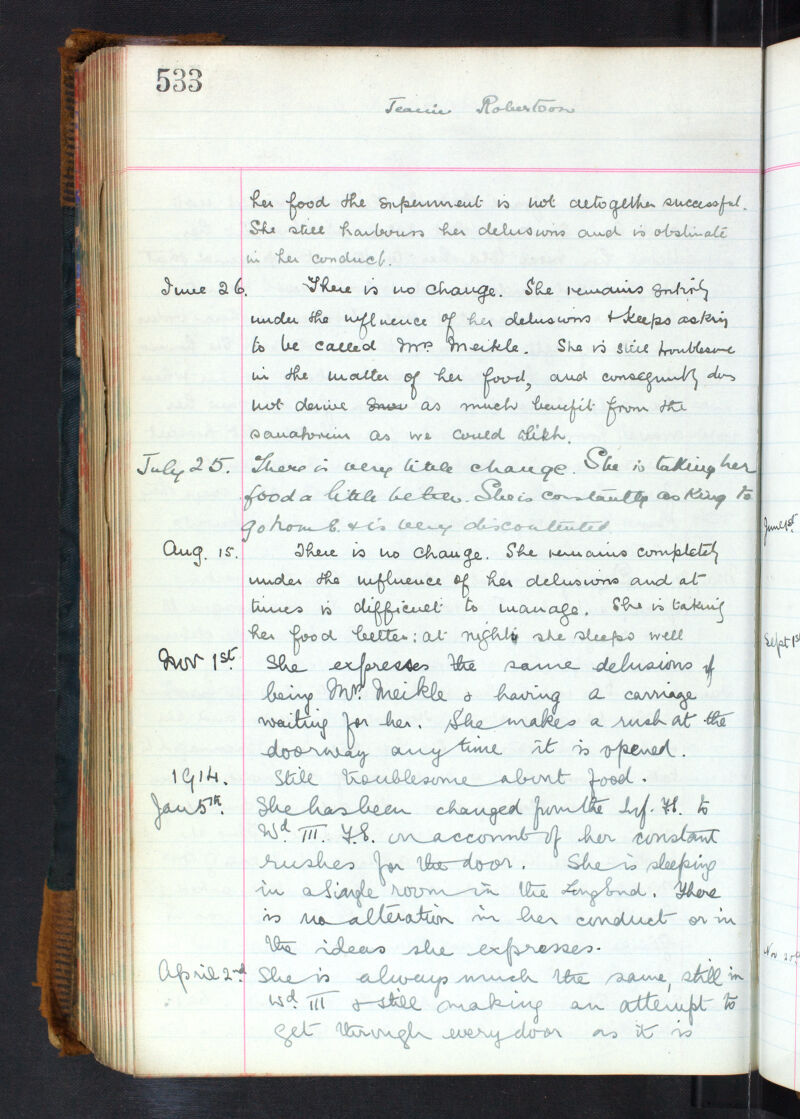 533
Jeanie Robertson
her food the experiment is not altogether successful.
She still harbours her delusions and is obstinate
in her conduct.
June 26. There is no change. She remains entirely
under the influence of her delusions & keeps asking
to be called Mrs Meikle. She is still troublesome
in the matter of her food, and consequently does
not derive as much benefit from the
sanatorium as we could wish.
July 25. There is very little change. She is taking her
food a little better. She is constantly asking to
go home & is very discontented.
Aug. 15. There is no change. She remains completely
under the influence of her delusions and at
times is difficult to manage. She is taking
her food better: at night she sleeps well
Nov 1st. She expresses the same delusions of
being Mrs. Meikle & having a carriage
waiting for her. She makes a rush at the
doorway any time it is opened.
1914. Still troublesome about food.
Jan 5th. She has been changed from the Inf. F.S. to
Wd. III. F.S. on account of her constant
rushes for the door. She is sleeping
in a Single room in the Long End. There
is no alteration in her conduct or in
the ideas she expresses.
April 2nd She is always much the same, still in
Wd. III & still making an attempt to
get through every door as it is
June 1st.
Sept 1st
Nov 25th